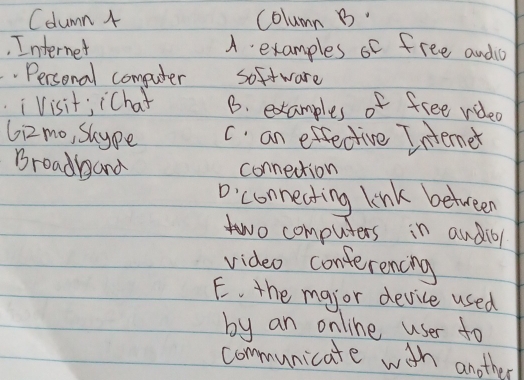 Column A
. Internet
.. Personal computer
. i Visit; iChat
Gizmo, Skype
Broadband
Column B.
A. examples of free audio
software
B. examples of free video
C. an effective Internet
connection
D. connecting link between
two computers in audio/
video conferencing
E. the major device used
by an online user to
communicate with another